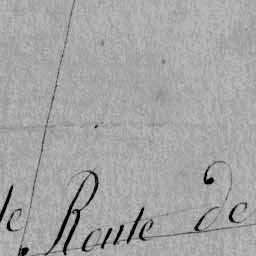 le Route de